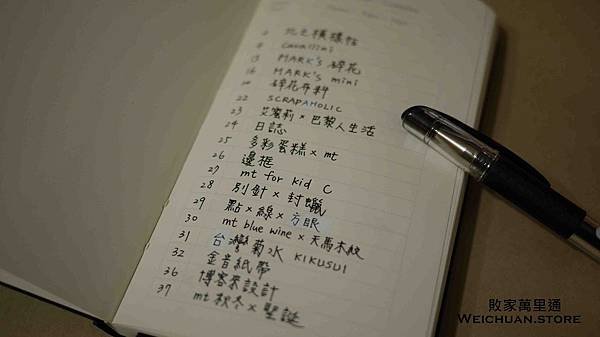 6 花之模樣帖
8 Cavallini
13 MARK's 碎花
16 MARK's mini
20 碎花布料
22 SCRAPAHOLIC
23 艾蜜莉×巴黎人生活
24 日誌
25 多彩蛋糕×mt
26 邊框
27 mt for kid C
28 別針×封蠟
29 點×線×方眼
30 mt blue wine×天馬木紋
31 台灣菊水 KIKUSUI
32 金音紙帶
36 博客來設計
37 mt 秋冬×聖誕
敗家萬里通
WEICHUAN.STORE